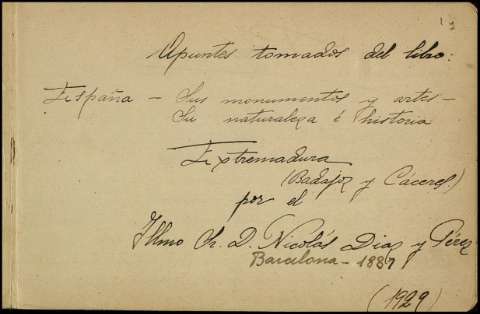 Apuntes tomados del libro:
España - Sus monumentos y artes -
Su naturaleza é historia
Extremadura
(Badajoz y Cáceres)
por el
Illmo Sr. D. Nicolás Diaz y Pérez
Barcelona - 1887
(1929)